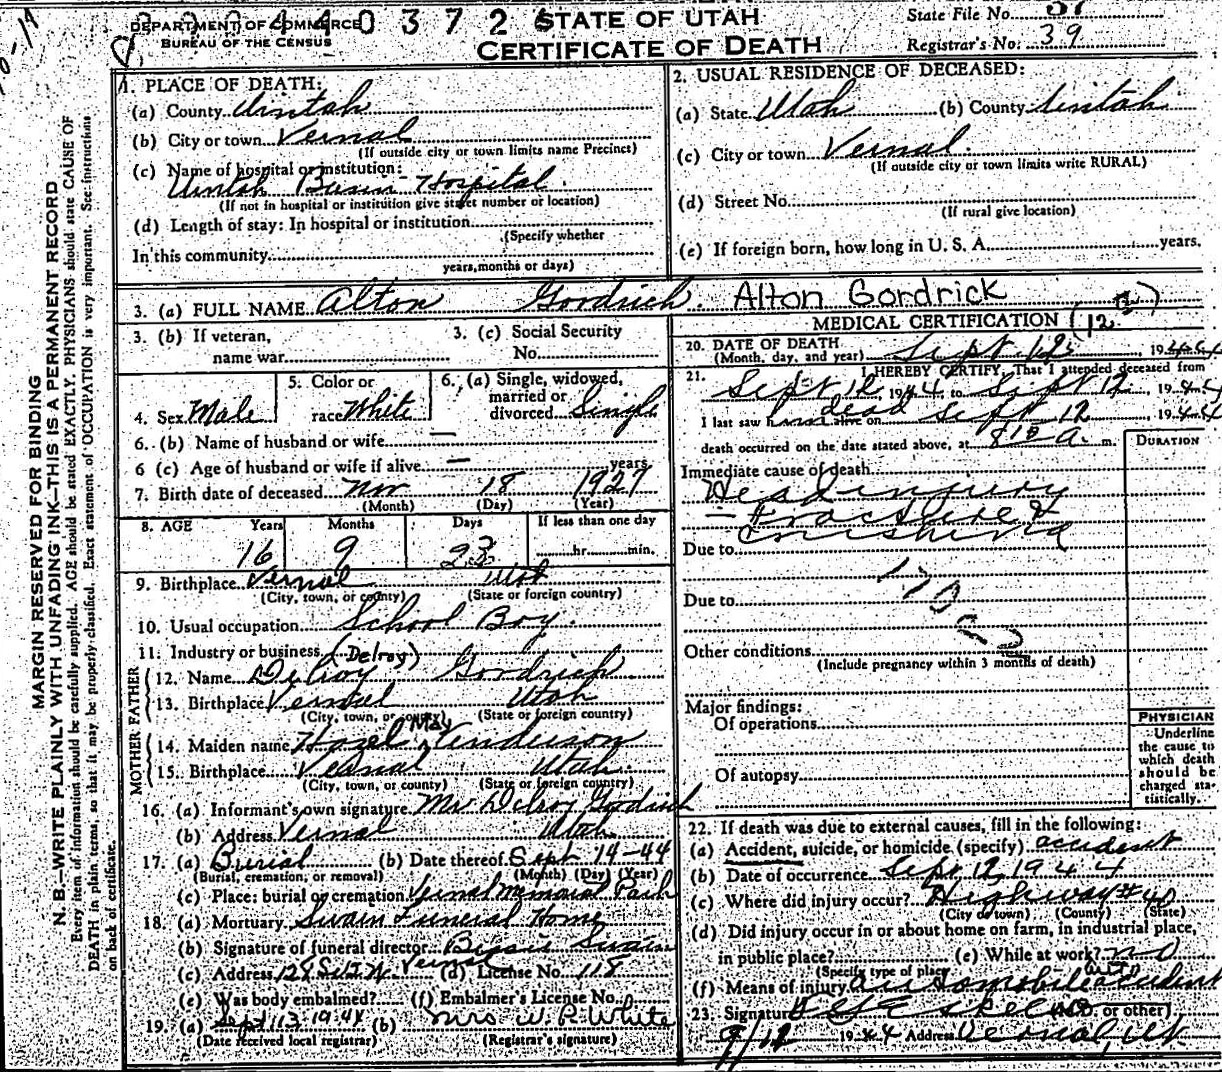 DEPARTMENT OF COMMERCE
BUREAU OF THE CENSUS
4 0 3 7 2
STATE OF UTAH
CERTIFICATE OF DEATH
State File No. 37
Registrar's No. 39
MARGIN RESERVED FOR BINDING
N. B.—WRITE PLAINLY WITH UNFADING INK—THIS IS A PERMANENT RECORD
Every item of information should be carefully supplied. AGE should be stated EXACTLY. PHYSICIANS should state CAUSE OF
DEATH in plain terms, so that it may be properly classified. Exact statement of OCCUPATION is very important. See instructions
on back of certificate.
1. PLACE OF DEATH:
(a) County Uintah
(b) City or town Vernal
(If outside city or town limits name Precinct)
(c) Name of hospital or institution:
Uintah Basin Hospital
(If not in hospital or institution give street number or location)
(d) Length of stay: In hospital or institution
(Specify whether
In this community
years, months or days)
2. USUAL RESIDENCE OF DECEASED:
(a) State Utah (b) County Uintah
(c) City or town Vernal
(If outside city or town limits write RURAL)
(d) Street No.
(If rural give location)
(e) If foreign born, how long in U. S. A. years.
3. (a) FULL NAME Alton Gordrich Alton Gordrick
3. (b) If veteran,
name war
3. (c) Social Security
No.
4. Sex Male
5. Color or
race White
6. (a) Single, widowed,
married or
divorced Single
6. (b) Name of husband or wife —
6 (c) Age of husband or wife if alive — years
7. Birth date of deceased Nov 18 1927
(Month) (Day) (Year)
8. AGE Years Months Days If less than one day
16 9 23 hr. min.
9. Birthplace Vernal Utah
(City, town, or county) (State or foreign country)
10. Usual occupation School Boy
11. Industry or business
(Delroy)
FATHER
12. Name Delroy Goodrich
13. Birthplace Vernal Utah
(City, town, or county) (State or foreign country)
MOTHER
14. Maiden name Hazel May Anderson
15. Birthplace Vernal Utah
(City, town, or county) (State or foreign country)
16. (a) Informant's own signature Mr Delroy Goodrich
(b) Address Vernal Utah
17. (a) Burial (b) Date thereof Sept 14-44
(Burial, cremation, or removal) (Month) (Day) (Year)
(c) Place: burial or cremation Vernal Memorial Park
18. (a) Mortuary Swain Funeral Home
(b) Signature of funeral director Bessie Swain
(c) Address Vernal (d) License No. 118
(e) Was body embalmed? (f) Embalmer's License No.
19. (a) Sept 13 1944 (b) Mrs W. R. White
(Date received local registrar) (Registrar's signature)
MEDICAL CERTIFICATION (12)
20. DATE OF DEATH
(Month, day, and year) Sept 12, 1944
21. I HEREBY CERTIFY, That I attended deceased from
Sept 12, 1944, to Sept 12 1944
I last saw him dead alive on Sept 12, 1944
death occurred on the date stated above, at 8 15 A. m.
DURATION
Immediate cause of death
Head injury
— Fractured
Due to crushing
170
Due to
Other conditions
(Include pregnancy within 3 months of death)
Major findings:
Of operations
Of autopsy
PHYSICIAN
Underline
the cause to
which death
should be
charged sta-
tistically.
22. If death was due to external causes, fill in the following:
(a) Accident, suicide, or homicide (specify) accident
(b) Date of occurrence Sept 12, 1944
(c) Where did injury occur? Highway #40
(City or town) (County) (State)
(d) Did injury occur in or about home on farm, in industrial place,
in public place? (e) While at work? no
(Specify type of place)
(f) Means of injury automobile accident
23. Signature (M.D. or other)
9/12 1944 Address Vernal, Ut.